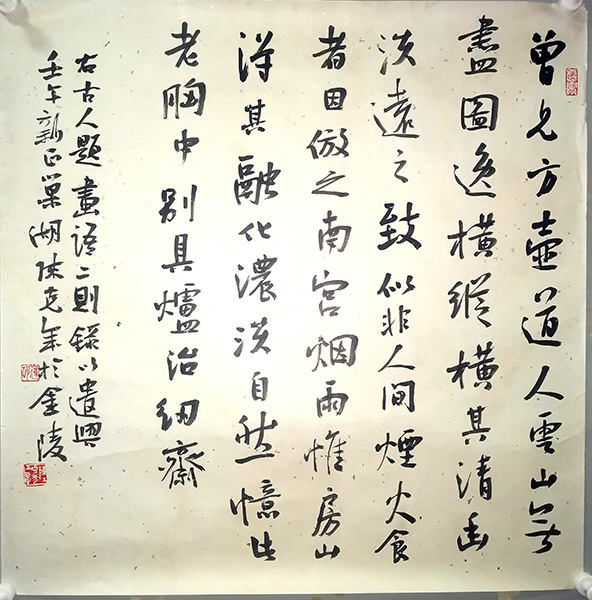 曾見方壺道人雲山無
盡圖逸橫縱橫其清幽
淡遠之致似非人間煙火食
者因倣之南宮烟雨惟房山
得其融化濃淡自然憶此
老胸中別具爐冶細齋
右古人題畫語二則錄以遣興
壬午新正巢湖陳克年於金陵